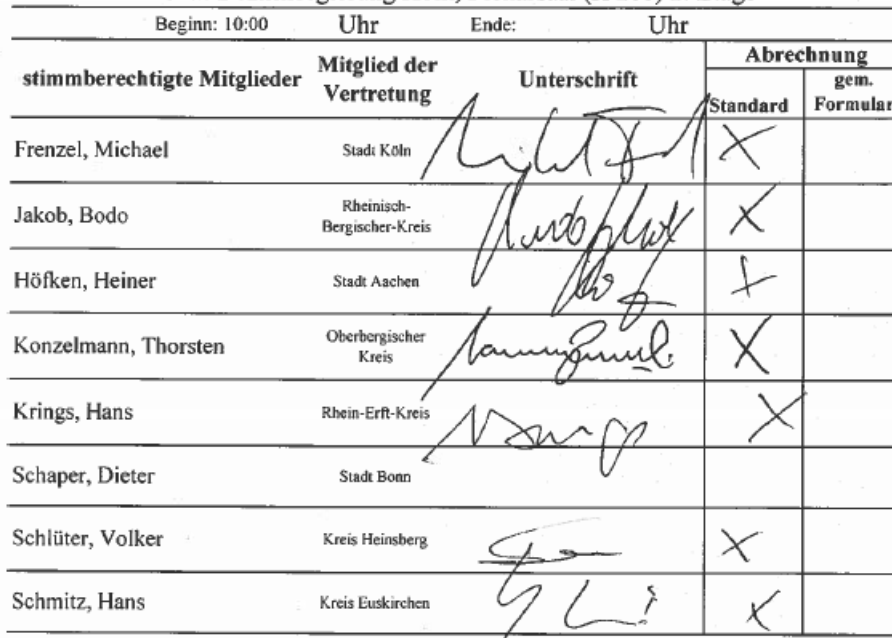 Beginn: 10:00 Uhr Ende: Uhr
stimmberechtigte Mitglieder Mitglied der Vertretung Unterschrift Abrechnung
Standard gem. Formular
Frenzel, Michael Stadt Köln X
Jakob, Bodo Rheinisch-Bergischer-Kreis X
Höfken, Heiner Stadt Aachen X
Konzelmann, Thorsten Oberbergischer Kreis X
Krings, Hans Rhein-Erft-Kreis X
Schaper, Dieter Stadt Bonn
Schlüter, Volker Kreis Heinsberg X
Schmitz, Hans Kreis Euskirchen X